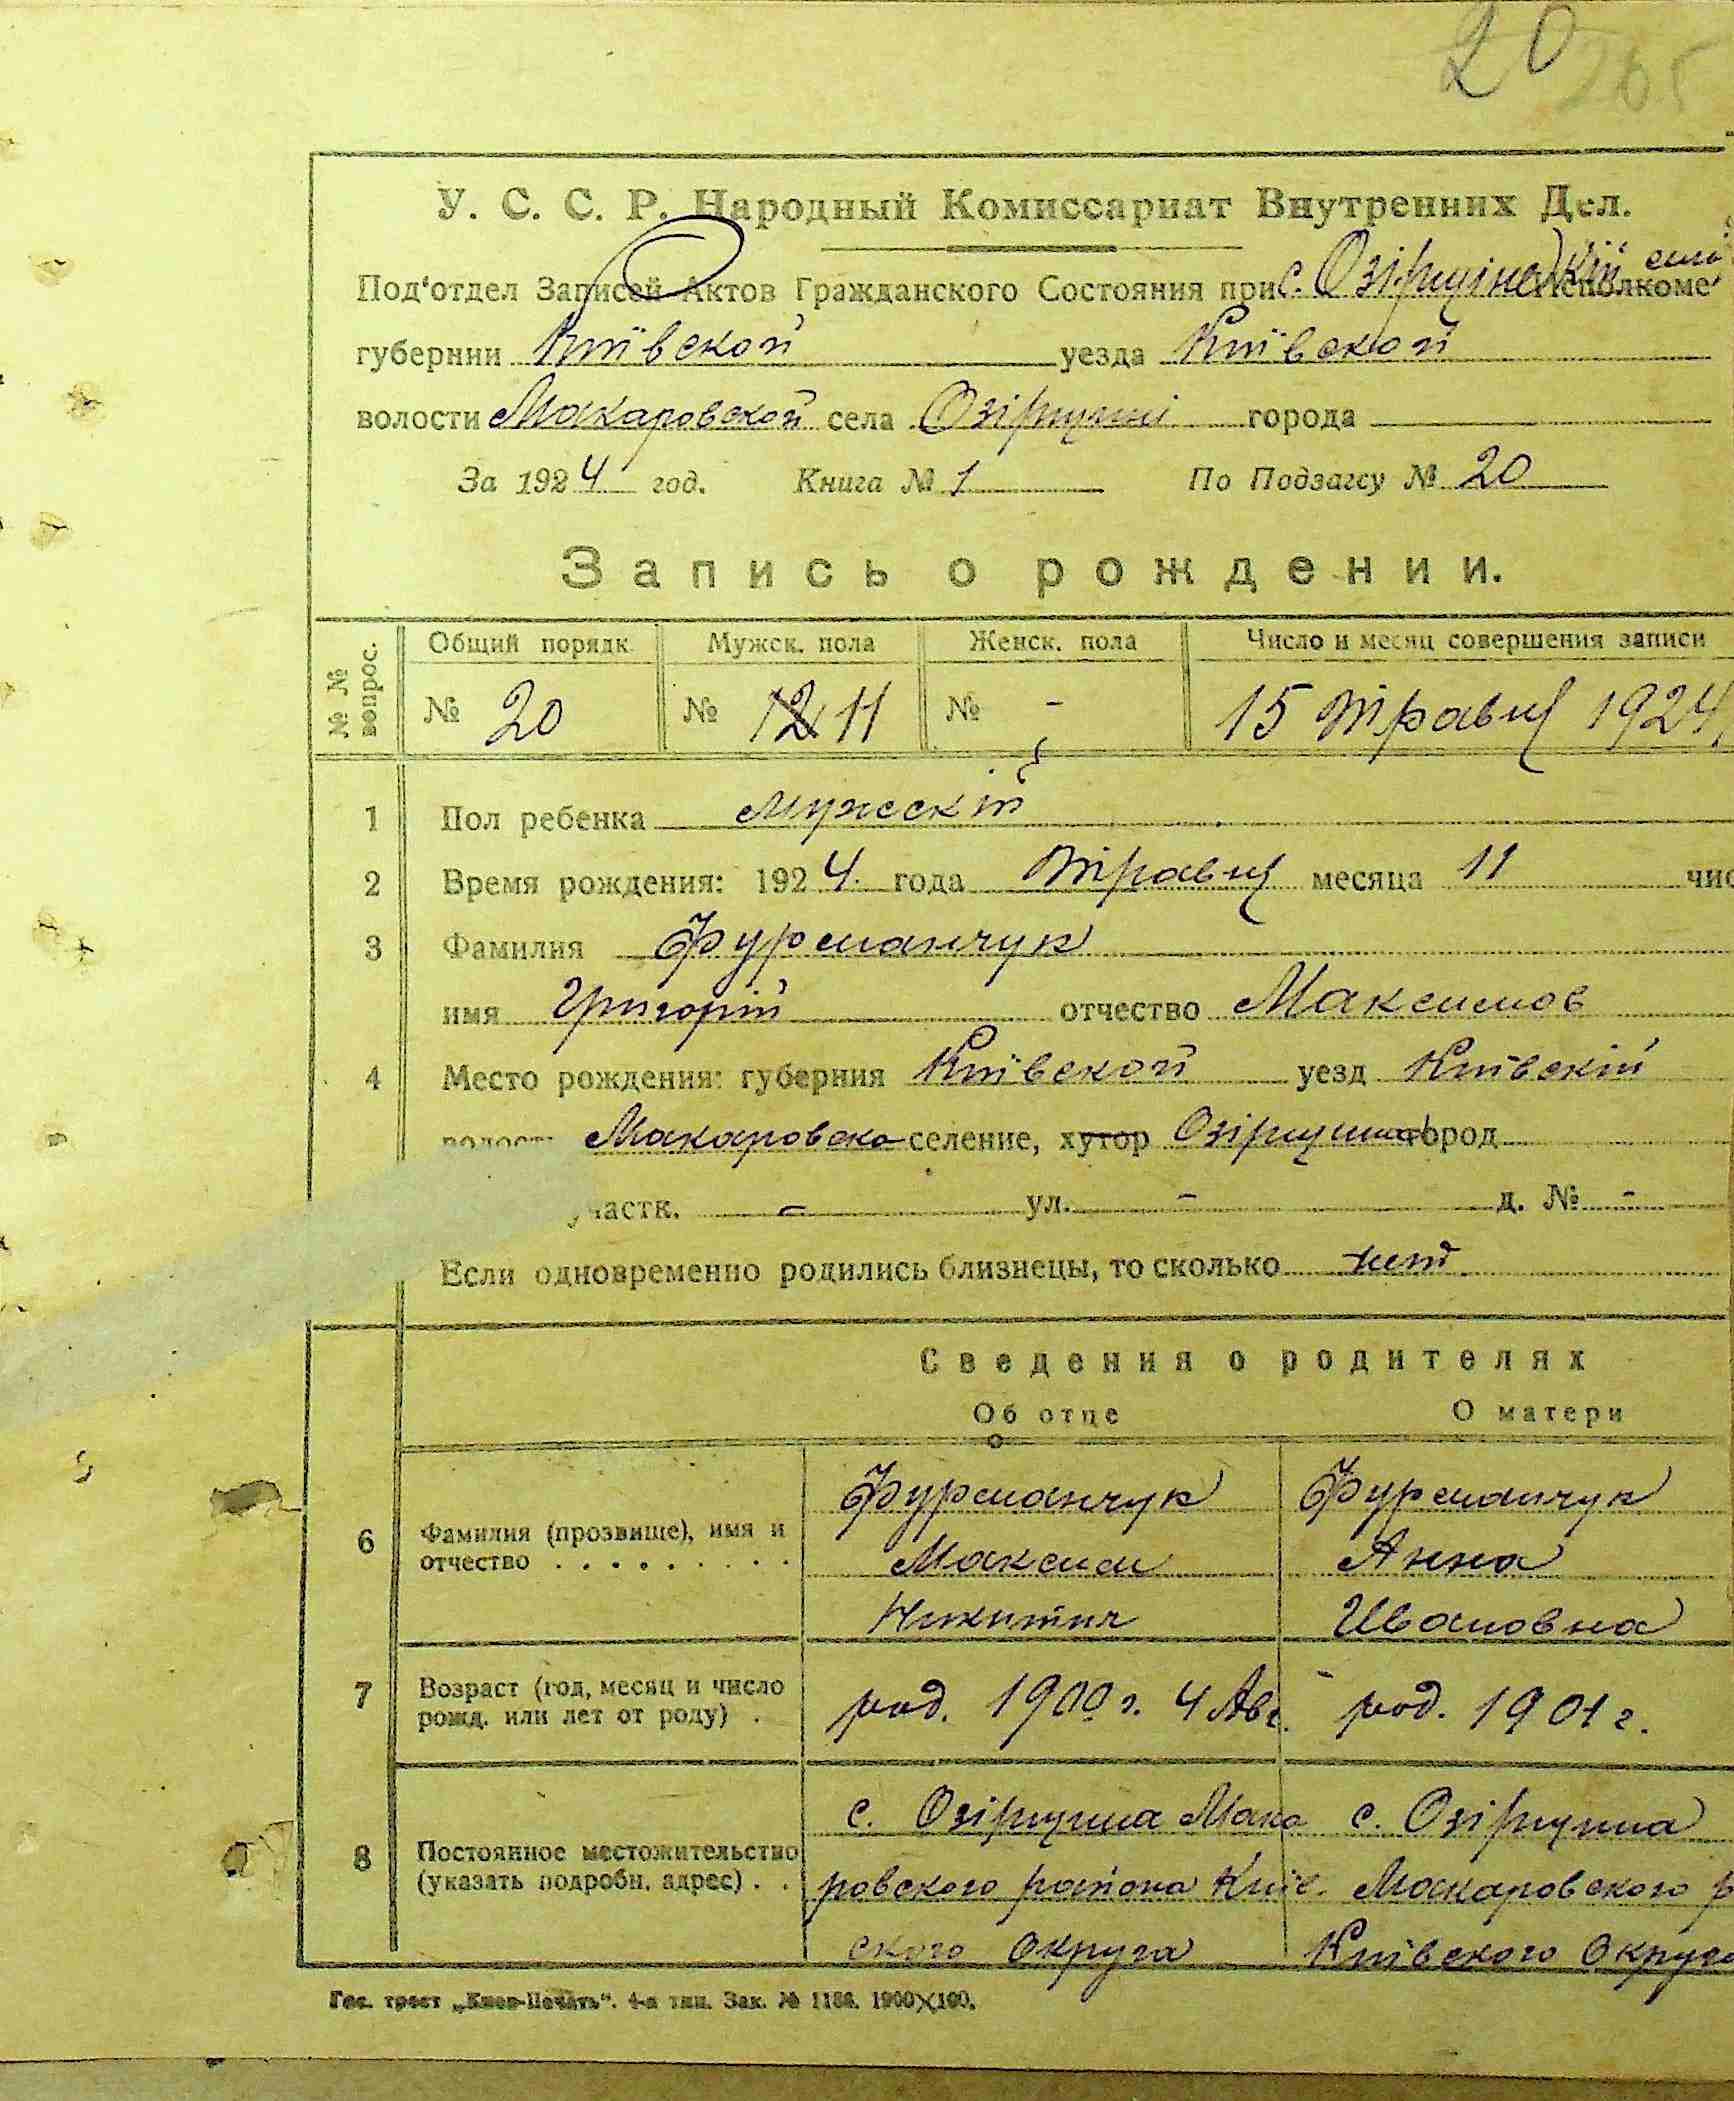 20 265
У. С. С. Р. Народный Комиссариат Внутренних Дел.
Под'отдел Записей Актов Гражданского Состояния при с. Озірщінскій Исполкоме
губернии Київской уезда Київской
волости Макаровской села Озірщині города
За 1924 год. Книга № 1 По Подзагсу № 20
Запись о рождении.
№ № вопрос. Общий порядк. Мужск. пола Женск. пола Число и месяц совершения записи
№ 20 № 12 11 № - 15 травня 1924
1 Пол ребенка мужескій
2 Время рождения: 1924 года травня месяца 11 чис
3 Фамилия Фурманчук
имя Григорій отчество Максимов
4 Место рождения: губерния Київской уезд Київскій
волость Макаровско селение, хутор Озірщина город
участк. - ул. - д. № -
Если одновременно родились близнецы, то сколько нет
Сведения о родителях
Об отце О матери
Фурманчук Фурманчук
6 Фамилия (прозвище), имя и Максим Анна
отчество . . . . . . . . . Никитич Ивановна
7 Возраст (год, месяц и число
рожд. или лет от роду) . род. 1900 г. 4 Авг. род. 1901 г.
с. Озірщина Мака с. Озірщина
8 Постоянное местожительство
(указать подробн. адрес) . . ровского района Київ Макаровского р
ского округа Київского округа
Гос. трест „Киев-Печать". 4-я тип. Зак. № 1186. 1900×100.